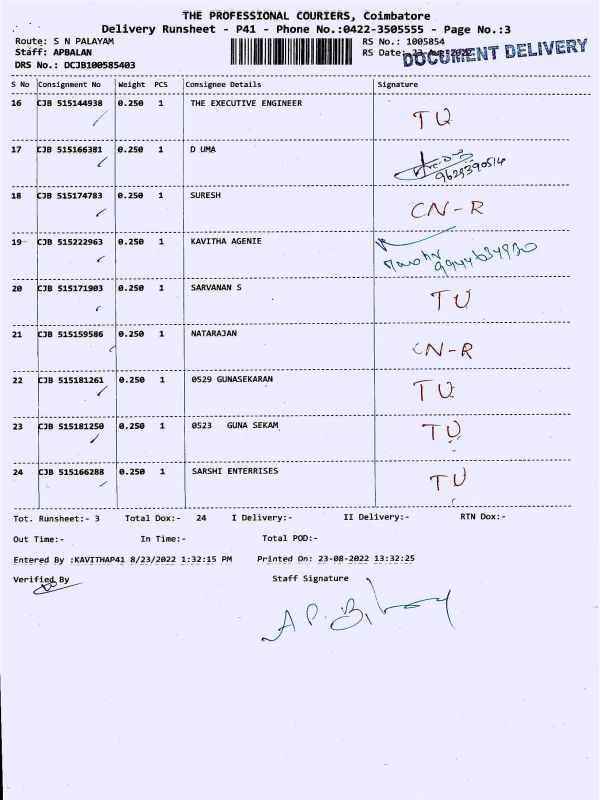 THE PROFESSIONAL COURIERS, Coimbatore
Delivery Runsheet - P41 - Phone No.:0422-3505555 - Page No.:3
Route: S N PALAYAM RS No.: 1005854
Staff: APBALAN RS Date: 23-Aug-2022
DOCUMENT DELIVERY
DRS No.: DCJB100585403
S No Consignment No Weight PCS Consignee Details Signature
16 CJB 515144938 0.250 1 THE EXECUTIVE ENGINEER TU
17 CJB 515166381 0.250 1 D UMA
18 CJB 515174783 0.250 1 SURESH CN-R
19 CJB 515222963 0.250 1 KAVITHA AGENIE
20 CJB 515171903 0.250 1 SARVANAN S TU
21 CJB 515159586 0.250 1 NATARAJAN CN-R
22 CJB 515181261 0.250 1 0529 GUNASEKARAN TU
23 CJB 515181250 0.250 1 0523 GUNA SEKAM TU
24 CJB 515166288 0.250 1 SARSHI ENTERRISES TU
Tot. Runsheet:- 3 Total Dox:- 24 I Delivery:- II Delivery:- RTN Dox:-
Out Time:- In Time:- Total POD:-
Entered By :KAVITHAP41 8/23/2022 1:32:15 PM Printed On: 23-08-2022 13:32:25
Verified By Staff Signature